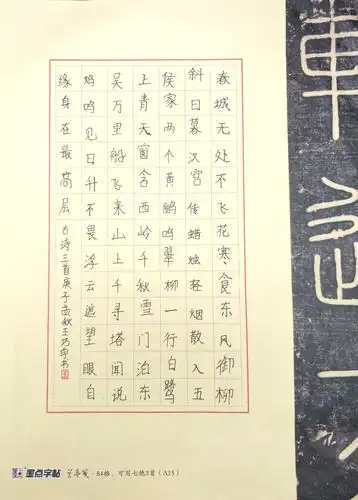 春城无处不飞花寒食东风御柳
斜日暮汉宫传蜡烛轻烟散入五
侯家两个黄鹂鸣翠柳一行白鹭
上青天窗含西岭千秋雪门泊东
吴万里船飞来山上千寻塔闻说
鸡鸣见日升不畏浮云遮望眼自
缘身在最高层 古诗三首庚子孟秋王巧宇书
墨点字帖 兰亭笺·84格,可写七绝3首(A15)